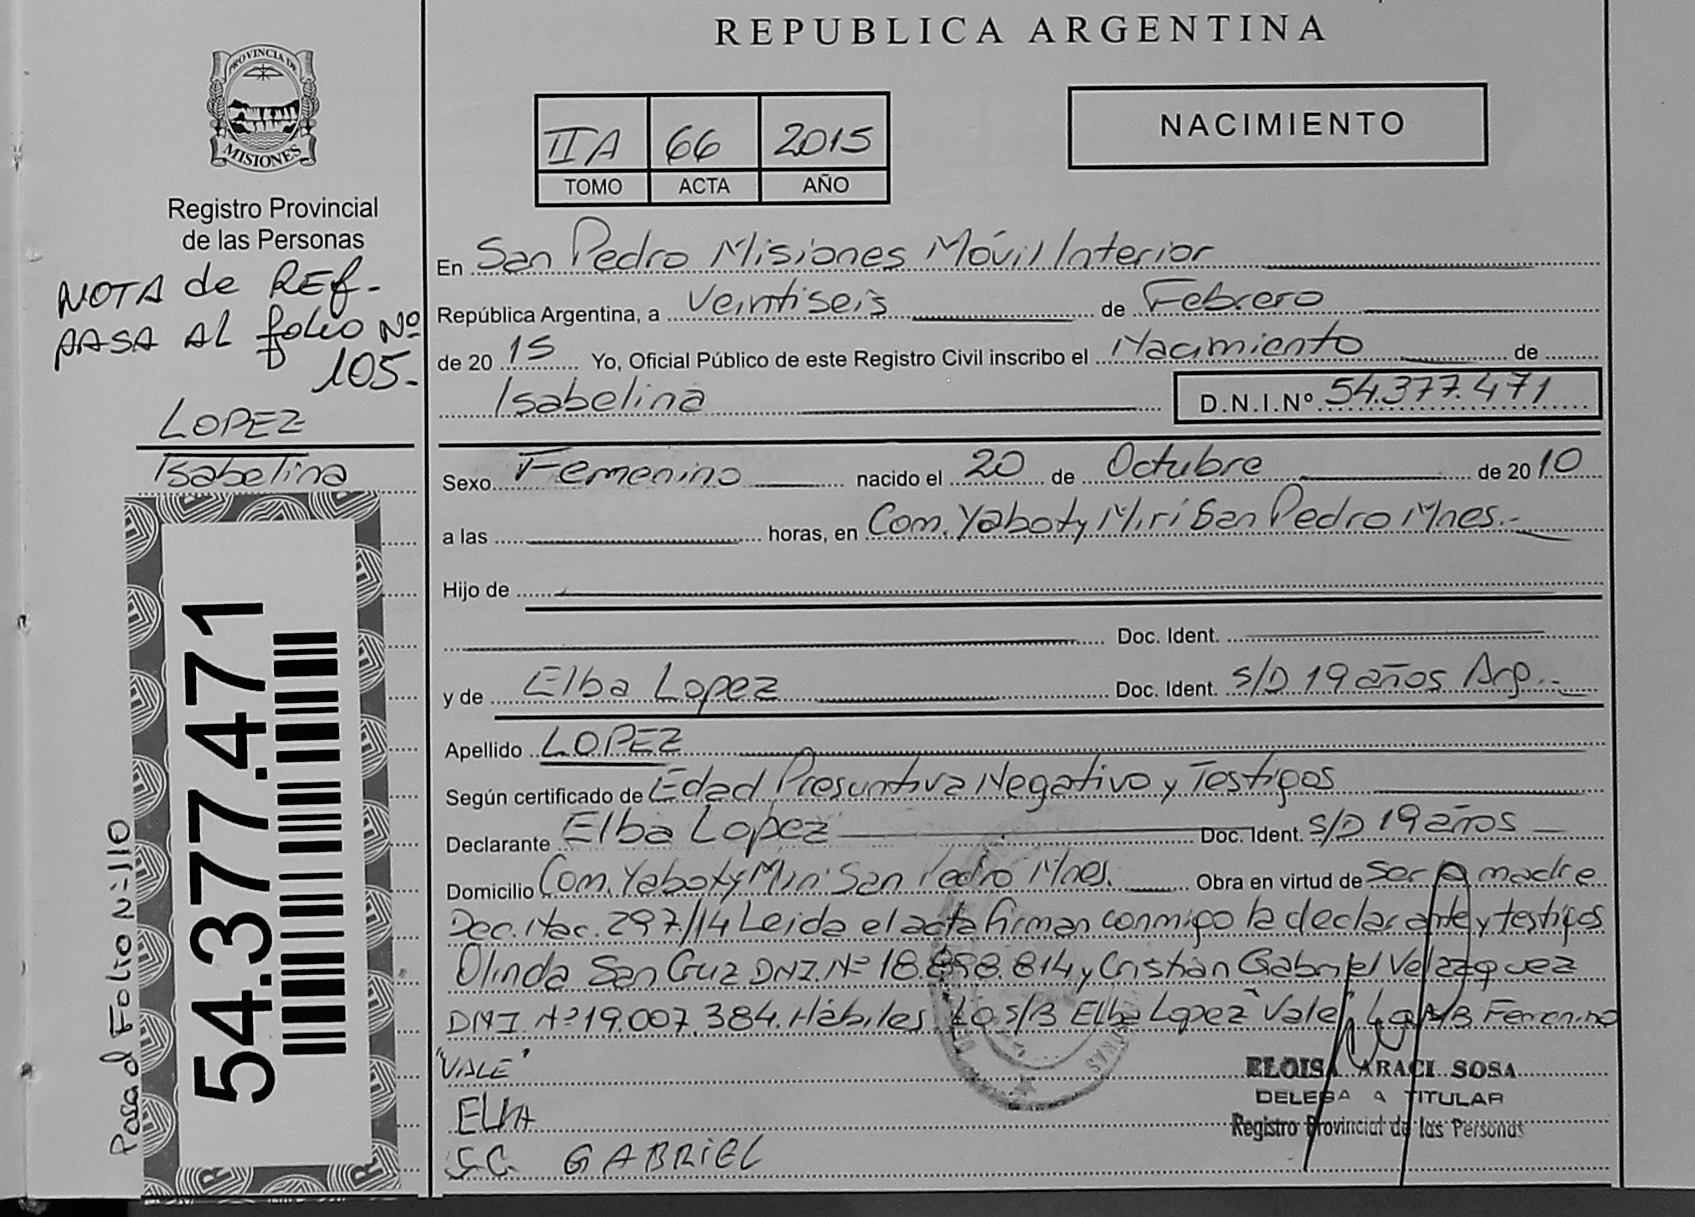 PROVINCIA DE
MISIONES
Registro Provincial
de las Personas
NOTA de REF.
PASA AL folio Nº
105.-
LOPEZ
Isabelina
54.377.471
Pasa al Folio Nº 110
REPUBLICA ARGENTINA
IIA 66 2015
TOMO ACTA AÑO
NACIMIENTO
En San Pedro Misiones Móvil Interior
República Argentina, a Veintiseis de Febrero
de 2015 Yo, Oficial Público de este Registro Civil inscribo el Nacimiento de
Isabelina D.N.I.Nº 54.377.471
Sexo Femenino nacido el 20 de Octubre de 2010
a las horas, en Com. Yaboty Miri San Pedro Mnes.-
Hijo de
Doc. Ident.
y de Elba Lopez Doc. Ident. S/D 19 años Arg.-
Apellido LOPEZ
Según certificado de Edad Presuntiva Negativo y Testigos
Declarante Elba Lopez Doc. Ident. S/D 19 años
Domicilio Com. Yaboty Miri San Pedro Mnes. Obra en virtud de ser la madre
Dec. Nac. 297/14 Leida el acta firman conmigo la declarante y testigos
Olinda San Cruz DNI. Nº 18.898.814 y Cristian Gabriel Velazquez
DNI. Nº 19.007.384. Hábiles. Lo S/B Elba Lopez "Vale" Lo S/B Femenino
"VALE"
ELBA
S.C. GABRIEL
ELOISA ARACI SOSA
DELEGADA TITULAR
Registro Provincial de las Personas